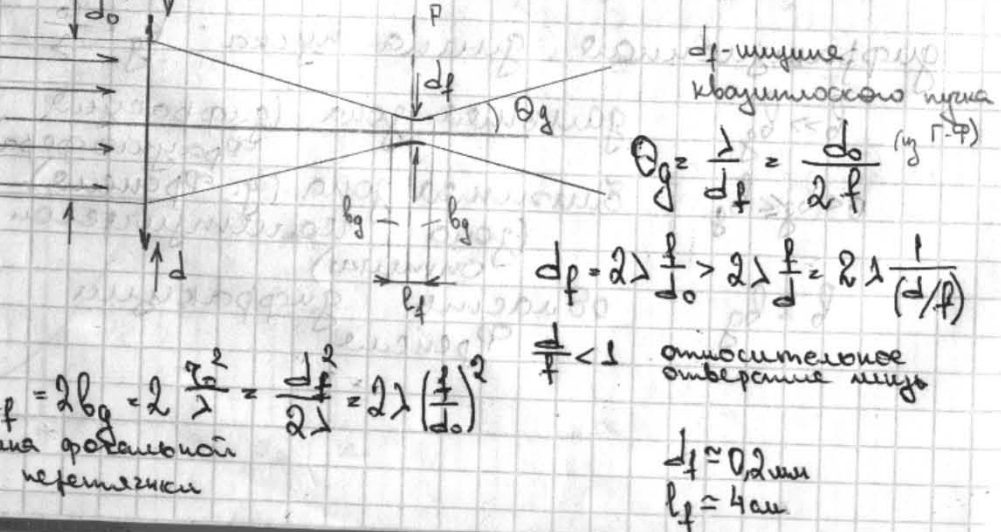 d₀
F
d_f
Θ_g
d_f - ширина
квазиплоского пучка
Θ_g = λ/d_f = d₀/2f (из Г-Ф)
b_g b_g
l_f
d
d_f = 2λ f/d₀ > 2λ f/d = 2λ 1/(d/f)
d/f < 1 относительное
отверстие линзы
f = 2b_g = 2 r₀²/λ = d_f²/2λ = 2λ (f/d₀)²
на фокальной
перетяжки
d_f ≃ 0,2 мм
l_f ≃ 4 см